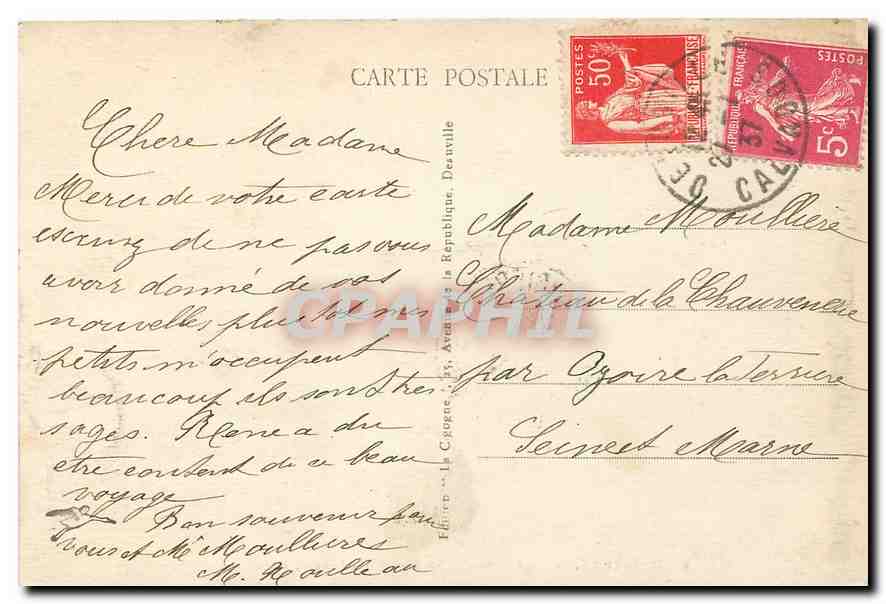 CARTE POSTALE
Chere Madame
Merci de votre carte
excusez de ne pas vous
avoir donné de vos
nouvelles plus tot mes
petits m'occupent
beaucoup ils sont tres
sages. Rene a du
etre content de ce beau
voyage
Bon souvenir pour
vous et Mr Moullieres
M.
La Cigogne, 25, Avenue de la République, Deauville
Madame Moullière
Château de la Chauvenerie
par Ozoire la Ferriere
Seine et Marne
POSTES
50c
REPUBLIQUE FRANÇAISE
POSTES
REPUBLIQUE FRANÇAISE
5c
37
CALVADOS
CPAPHIL